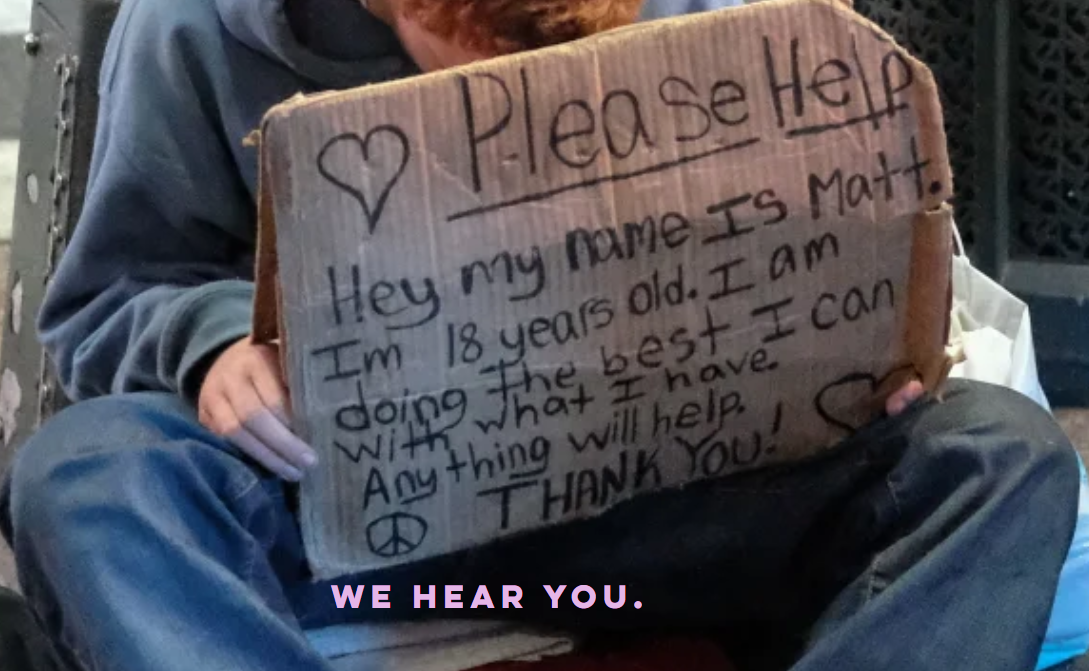 Please Help
Hey my name Is Matt.
Im 18 years old. I am
doing the best I can
with what I have.
Anything will help.
THANK YOU!
WE HEAR YOU.